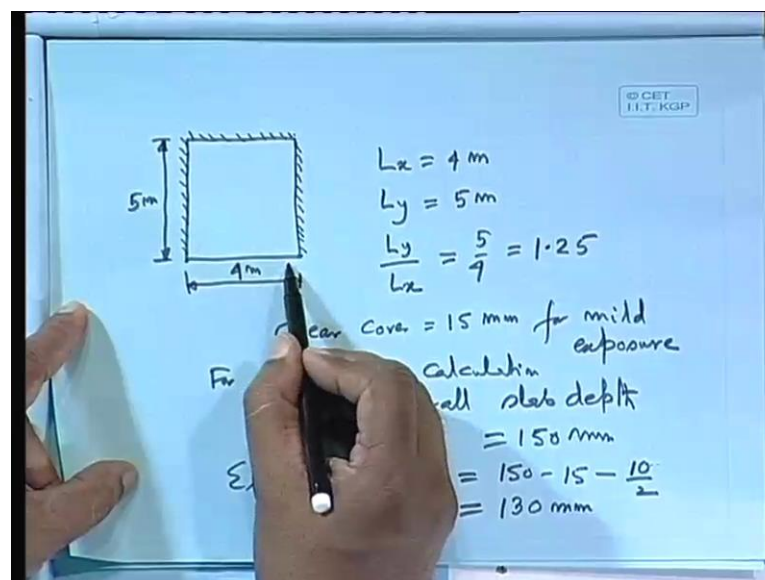 © CET
I.I.T. KGP
5m
4m
Lx = 4 m
Ly = 5 m
Ly/Lx = 5/4 = 1.25
cover = 15 mm for mild exposure
For calculation
slab depth
= 150 mm
= 150 - 15 - 10/2
= 130 mm